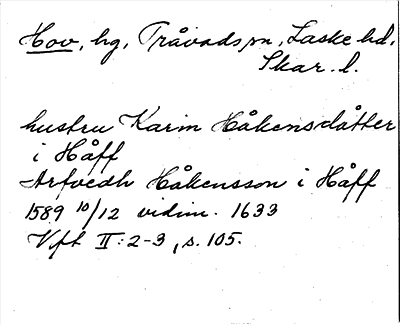 Hov, hg, Tråvads sn, Laske hd.
Skar. l.
hustru Karin Håkensdåtter
i Håff
Arfvedh Håkensson i Håff
1589 10/12 vidim. 1633
Vft II:2-3, s. 105.